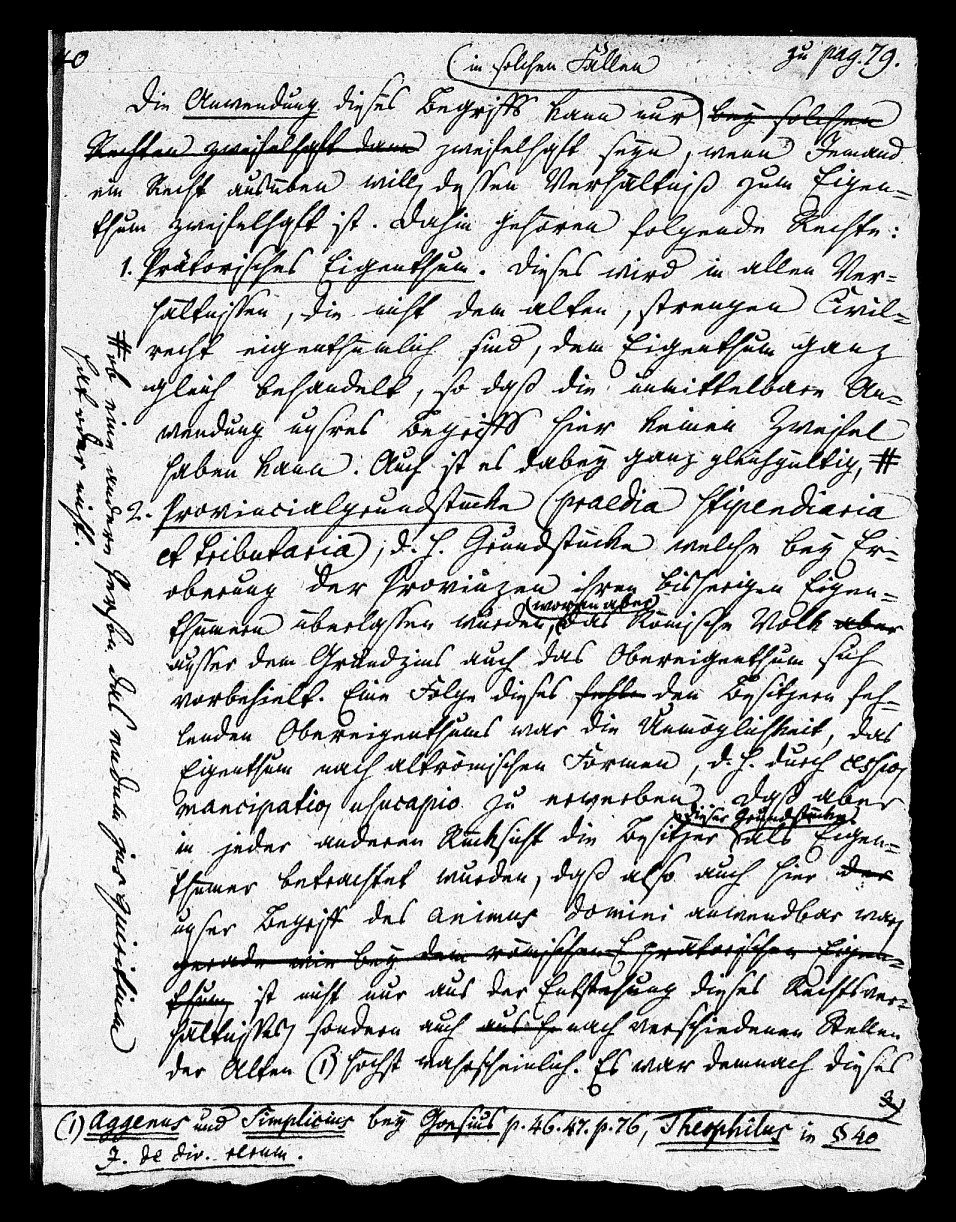 40
zu pag. 79.
(in solchen Fällen
Die Anwendung dieses Begriffs kann nur bey solchen
Rechten zweifelhaft dann zweifelhaft seyn, wenn Jemand
ein Recht ausüben will, dessen Verhältniß zum Eigen=
thum zweifelhaft ist. Dahin gehören folgende Rechte:
1. Prätorisches Eigenthum. Dieses wird in allen Ver=
hältnissen, die nicht dem alten, strengen Civil=
recht eigenthümlich sind, dem Eigenthum ganz
gleich behandelt, so daß die unmittelbare An=
wendung unsres Begriffs hier keinen Zweifel
haben kann. Auch ist es dabey ganz gleichgültig, #
# ob eine andere Person das nudum jus quiritium
hat oder nicht.
2. Provincialgrundstücke (praedia stipendiaria
et tributaria), d. h. Grundstücke welche bey Er=
oberung der Provinzen ihren bisherigen Eigen=
thümern überlassen wurden, das Römische Volk aber
(woran aber
ausser dem Grundzins auch das Obereigenthum sich
vorbehielt. Eine Folge dieses fehle den Besitzern feh=
lenden Obereigenthums war die Unmöglichkeit, das
Eigenthum nach altrömischen Formen, d. h. durch cessio,
mancipatio, usucapio zu erwerben. Daß aber
dieser Grundstücke
in jeder anderen Rücksicht die Besitzer als Eigen=
thümer betrachtet wurden, daß also auch hier der
unser Begriff des animus domini anwendbar war,
gerade wie bey dem römischen prätorischen Eigen=
thum ist nicht nur aus der Entstehung dieses Rechtsver=
hältnisses, sondern auch aus nach verschiedenen Stellen
der Alten (1) höchst wahrscheinlich. Es war demnach dieses
(1) Aggenus und Simplicius bey Goesius p. 46. 47. p. 76, Theophilus in § 40
J. de div. rerum.